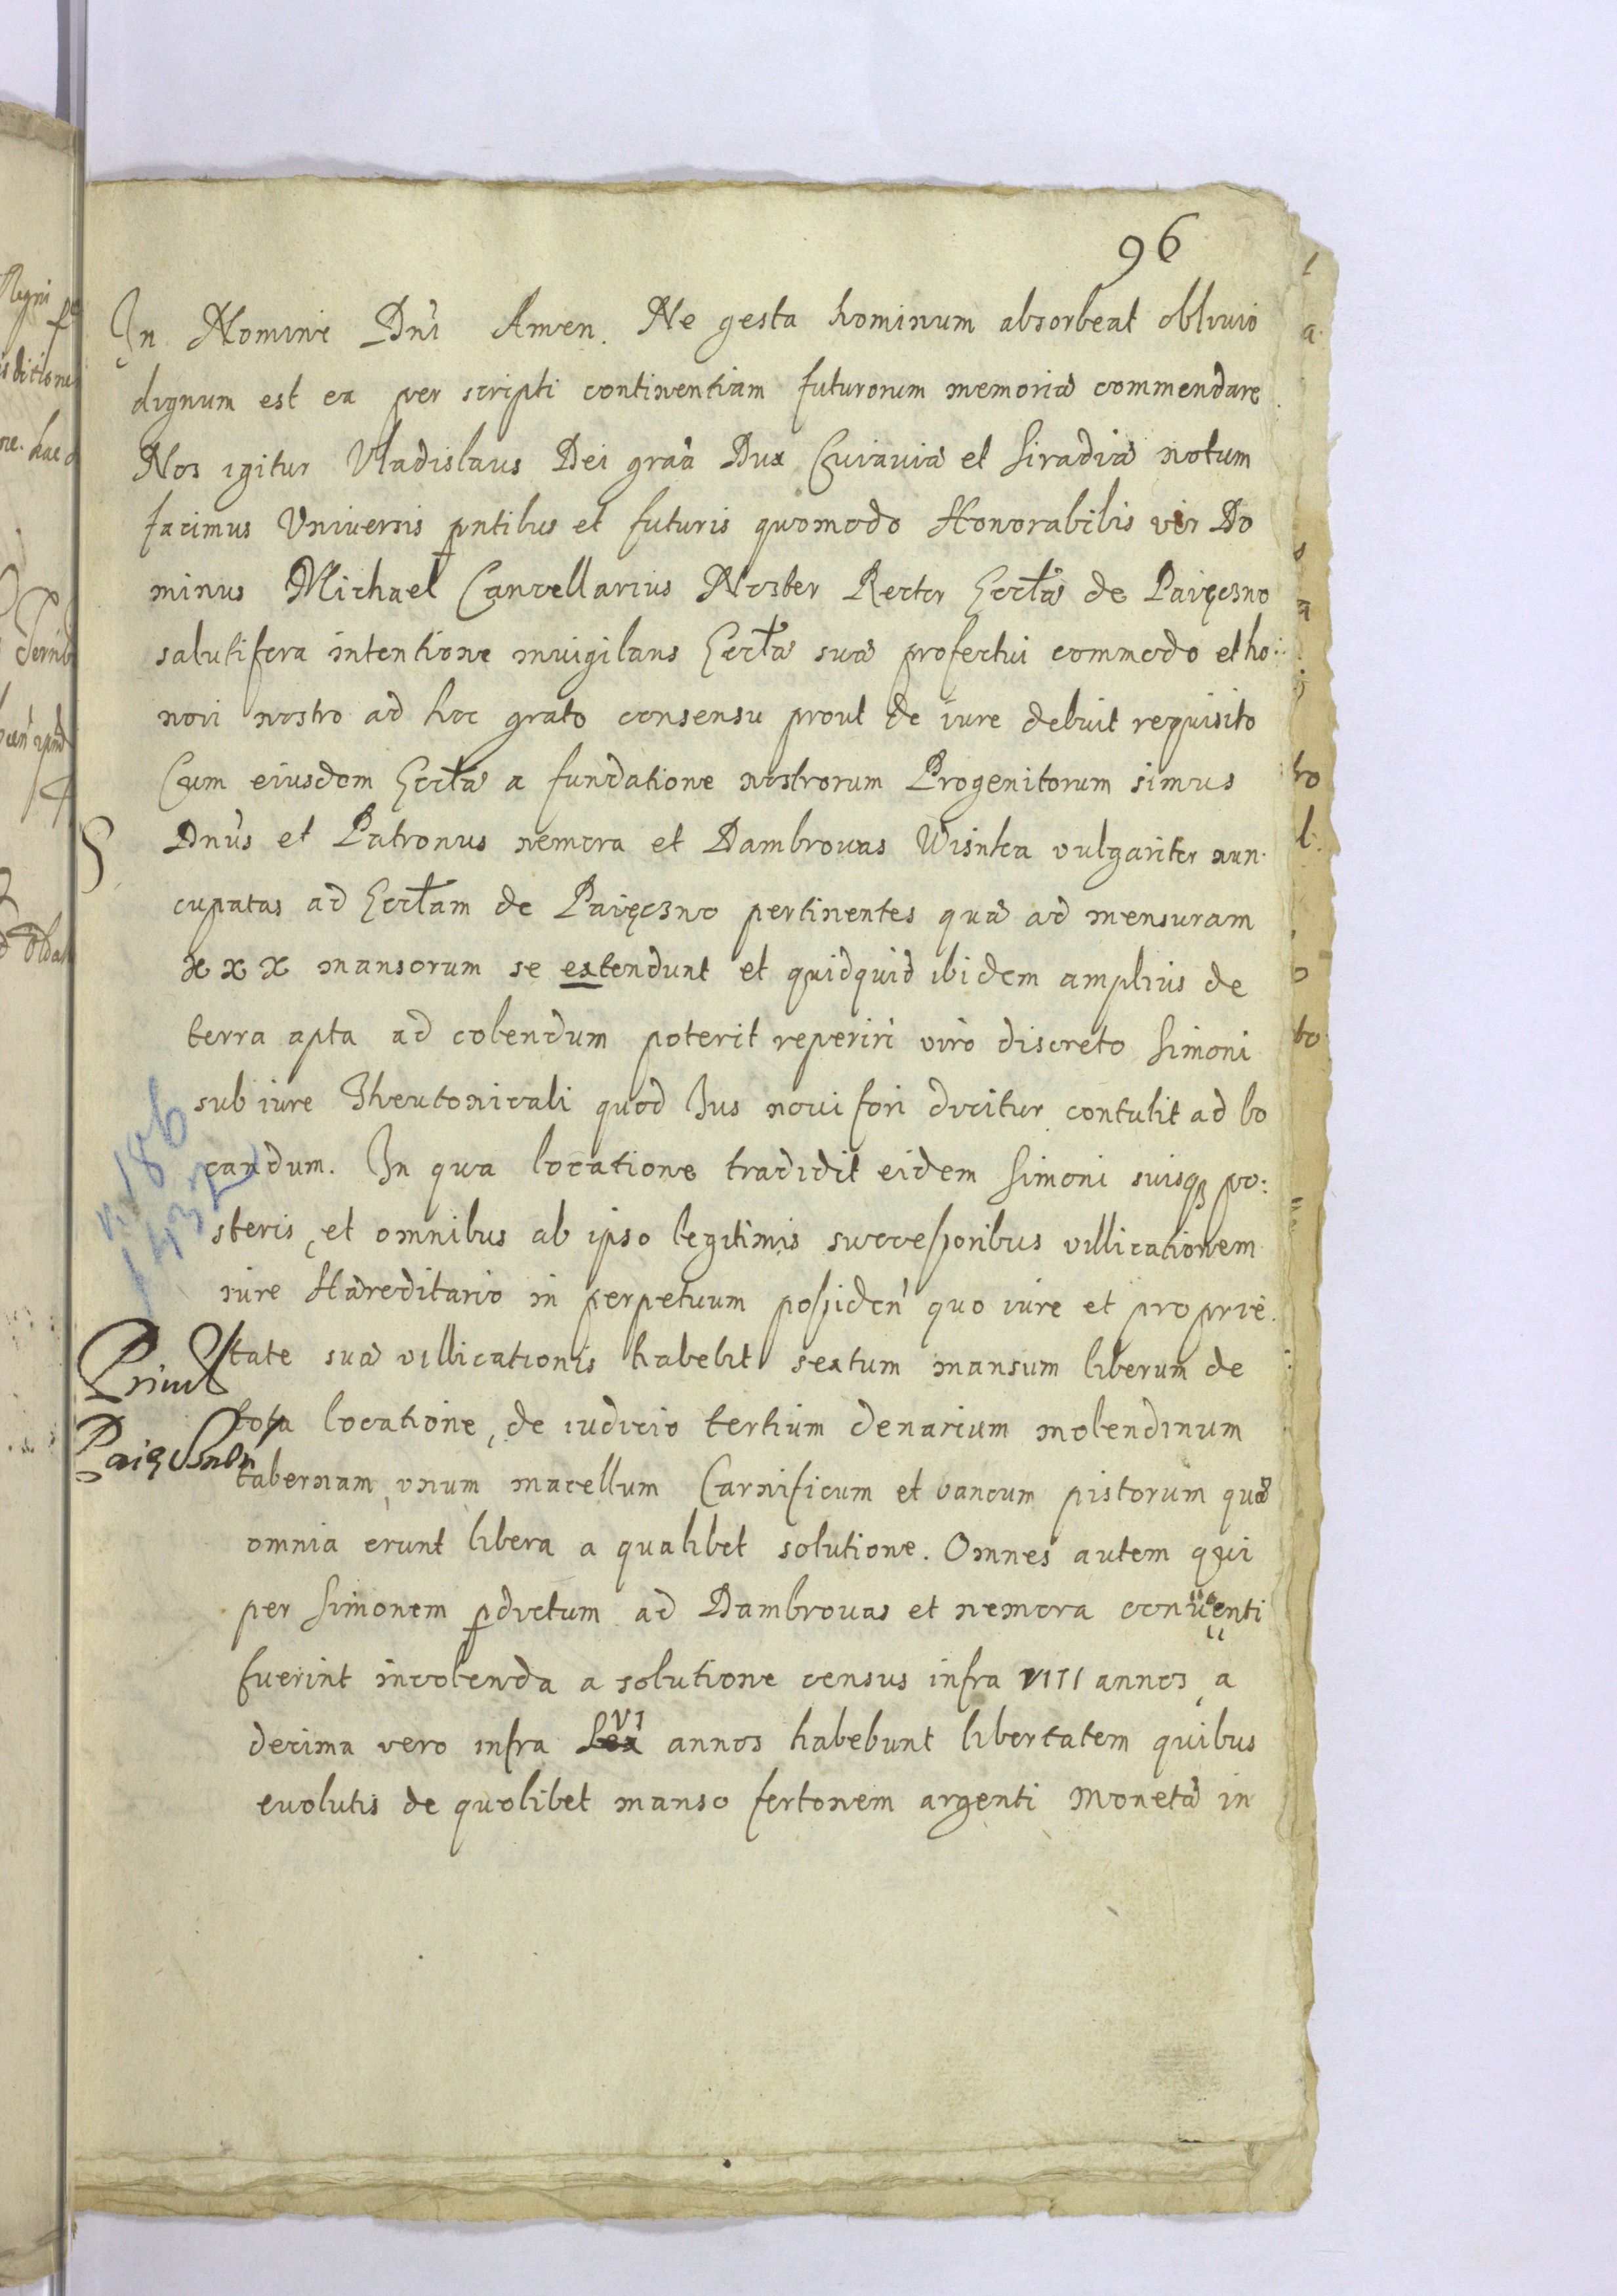 96
In Nomine Dni Amen. Ne gesta hominum absorbeat oblivio
dignum est ea per scripti continentiam futurorum memoriæ commendare
Nos igitur Vladislaus Dei graa Dux Cuiaviæ et Siradiæ notum
facimus Universis pntibus et futuris quomodo Honorabilis vir Do
minus Michael Cancellarius Noster Rector Eccłæ de Paięczno
salutifera intentione invigilans Eccłæ suæ profectui commodo et ho:
nori nostro ad hoc grato consensu prout de iure debuit requisito
Cum eiusdem Eccłæ a fundatione nostrorum Progenitorum simus
Dnus et Patronus nemora et Dambrovas Wisntca vulgariter nun
cupatas ad Eccłam de Paięczno pertinentes quæ ad mensuram
x x x mansorum se extendunt et quidquid ibidem amplius de
terra apta ad colendum poterit reperiri viro discreto Simoni
sub iure Theutonicali quod Ius novi fori dicitur contulit ad lo
candum. In qua locatione tradidit eidem Simoni suisqʒ po:
steris, et omnibus ab ipso legitimis successoribus villicationem
iure Hæreditario in perpetuum possiden' quo iure et proprie.
tate suæ villicationis habebit sextum mansum liberum de
tota locatione, de iudicio tertium denarium molendinum
tabernam, unum macellum Carnificum et vancum pistorum quæ
omnia erunt libera a qualibet solutione. Omnes autem qui
per Simonem pdictum ad Dambrovas et nemora conventi
fuerint incolenda a solutione census infra VIII annos, a
decima vero infra VI annos habebunt libertatem quibus
evolutis de quolibet manso fertonem argenti Monetæ in